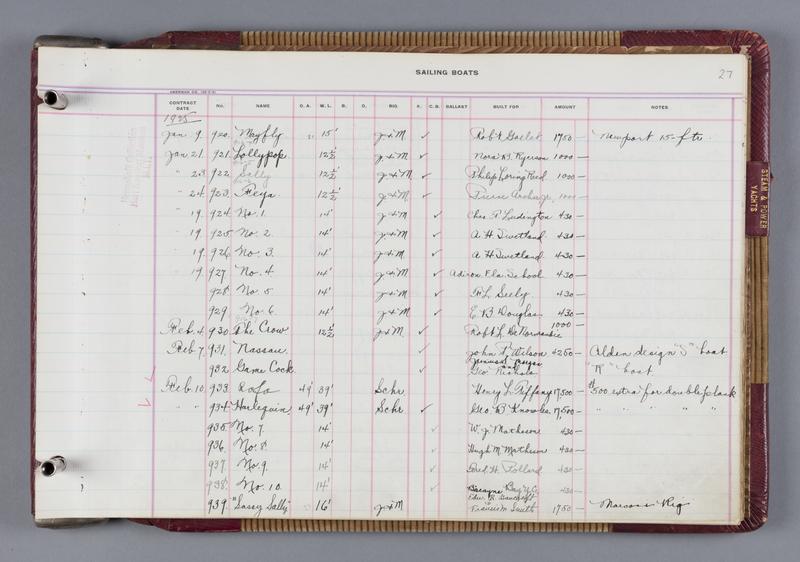 SAILING BOATS
27
CONTRACT DATE No. NAME O. A. W. L. B. D. RIG K. C. B. BALLAST BUILT FOR AMOUNT NOTES
1925
Jan 9. 920. Mayfly 15' J & M ✓ Rob't Goelet 1750 — Newport 15-ftr.
Jan 21. 921. Lollypop 12½' J & M ✓ Nora Ryerson 1000 —
" 23 922 Sally 12½' J & M ✓ Philip Loring Reed 1000 —
" 24 923. Freya 12½' J & M ✓ 1000 —
" 19. 924 No. 1. 14' J & M ✓ Chas. S. Ludington 430 —
" 19. 925 No. 2. 14' J & M ✓ A H Swetland 430 —
19. 926 No. 3. 14' J & M ✓ A H Swetland 430 —
19. 927 No. 4 14' J & M ✓ Adiron. Fla. School 430 —
928 No. 5 14' J & M ✓ F. L. Seely. 430 —
929 No. 6. 14' J & M ✓ E B Douglas 430 —
Feb. 4. 930. The Crow 12½' J & M. ✓ Rob't L. De Normandie 1000 —
Feb 7. 931. Nassau. ✓ John P. Wilson 4250 — Alden design "S" boat
932 Game Cock ✓ and Geo Nichols "R" boat
Feb 10. 933. 49' 39' Schr Henry L. Tiffany 17,500 — $500 extra for double plank
" " 934 Harlequin. 49' 39' Schr ✓ Geo B Knowles. 17,500 — " " " "
935 No. 7. 14' ✓ W. J. Matheson 430 —
936. No. 8. 14' ✓ Hugh M. Matheson 430 —
937. No. 9. 14' ✓ Fred. H. Pollard 430 —
938. No. 10. 14' ✓ Biscayne Bay Y.C. 430 —
939. "Sassy Sally" 16' J & M Edw. R. Bancroft Francis M. Smith 1750 — Marconi Rig
STEAM & POWER
YACHTS